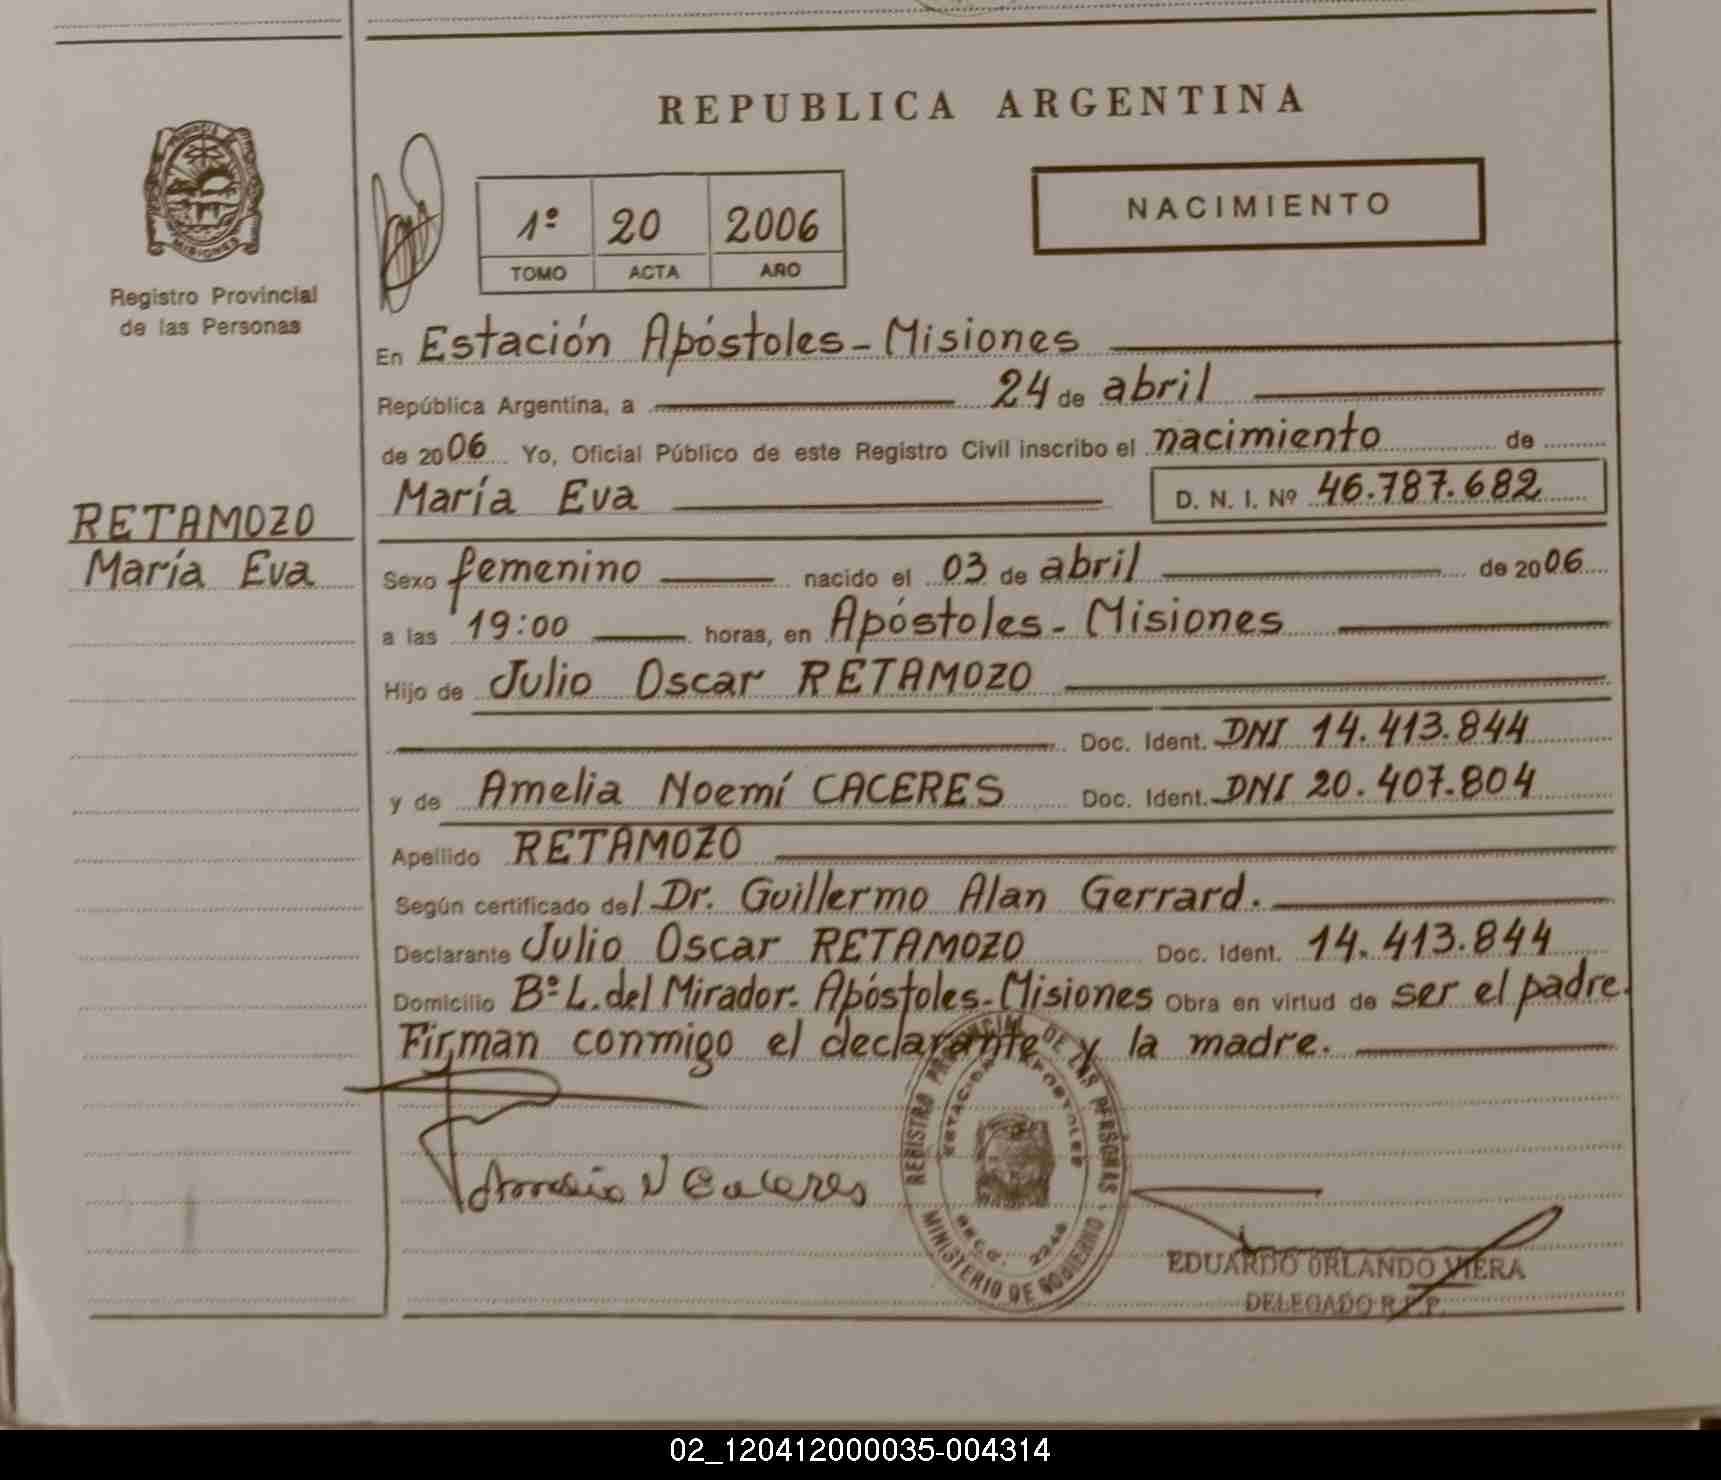 REPUBLICA ARGENTINA
MISIONES
Registro Provincial
de las Personas
1º 20 2006
TOMO ACTA AÑO
NACIMIENTO
En Estación Apóstoles - Misiones
República Argentina, a 24 de abril
de 2006 Yo, Oficial Público de este Registro Civil inscribo el nacimiento de
María Eva D. N. I. Nº 46.787.682
RETAMOZO
María Eva
Sexo femenino nacido el 03 de abril de 2006
a las 19:00 horas, en Apóstoles - Misiones
Hijo de Julio Oscar RETAMOZO
Doc. Ident. DNI 14.413.844
y de Amelia Noemí CACERES Doc. Ident. DNI 20.407.804
Apellido RETAMOZO
Según certificado del Dr. Guillermo Alan Gerrard.
Declarante Julio Oscar RETAMOZO Doc. Ident. 14.413.844
Domicilio Bº L. del Mirador - Apóstoles - Misiones Obra en virtud de ser el padre.
Firman conmigo el declarante y la madre.
REGISTRO PROVINCIAL DE LAS PERSONAS
ESTACION APOSTOLES
MINISTERIO DE GOBIERNO
Amelia N Caceres
EDUARDO ORLANDO VIERA
DELEGADO R.P.P.
02_120412000035-004314